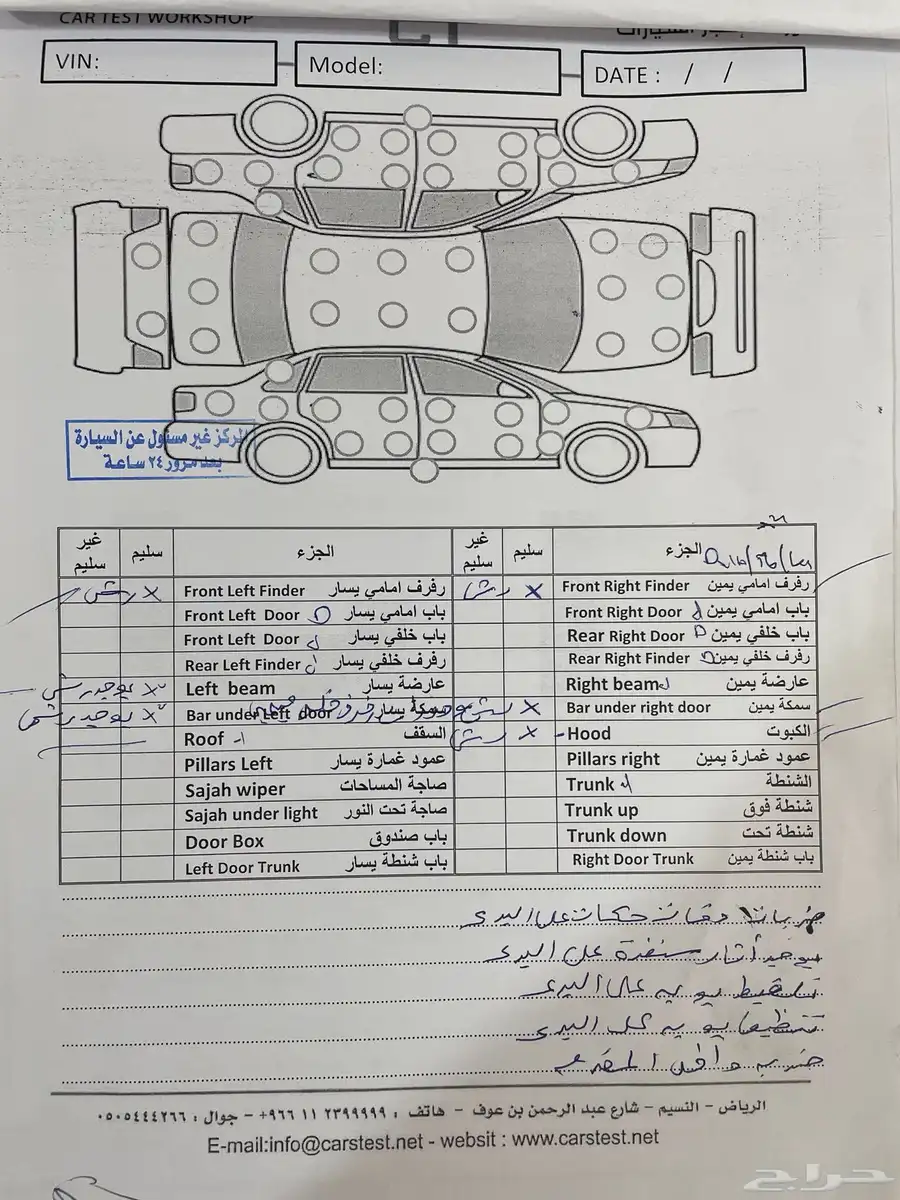 CAR TEST WORKSHOP
VIN:
Model:
DATE : / /
المركز غير مسئول عن السيارة
بعد مرور ٢٤ ساعة
غير سليم سليم الجزء غير سليم سليم الجزء
رش X Front Left Finder رفرف امامي يسار رش X Front Right Finder رفرف امامي يمين
Front Left Door باب امامي يسار Front Right Door باب امامي يمين
Front Left Door باب خلفي يسار Rear Right Door باب خلفي يمين
Rear Left Finder رفرف خلفي يسار Rear Right Finder رفرف خلفي يمين
يوجد رش X Left beam عارضة يسار Right beam عارضة يمين
يوجد رش X Bar under Left door سمكة يسار X Bar under right door سمكة يمين
Roof السقف رش X Hood الكبوت
Pillars Left عمود غمارة يسار Pillars right عمود غمارة يمين
Sajah wiper صاجة المساحات Trunk الشنطة
Sajah under light صاجة تحت النور Trunk up شنطة فوق
Door Box باب صندوق Trunk down شنطة تحت
Left Door Trunk باب شنطة يسار Right Door Trunk باب شنطة يمين
ضربات دقات حكات على البدي
يوجد أثار سنفرة على البدي
تلقيط بويه على البدي
بويه على البدي
ضربه داخل
الرياض - النسيم - شارع عبد الرحمن بن عوف - هاتف : ٢٣٩٩٩٩٩ ١١ ٩٦٦+ - جوال : ٠٥٠٥٤٤٤٢٦٦
E-mail:info@carstest.net - websit : www.carstest.net
حراج